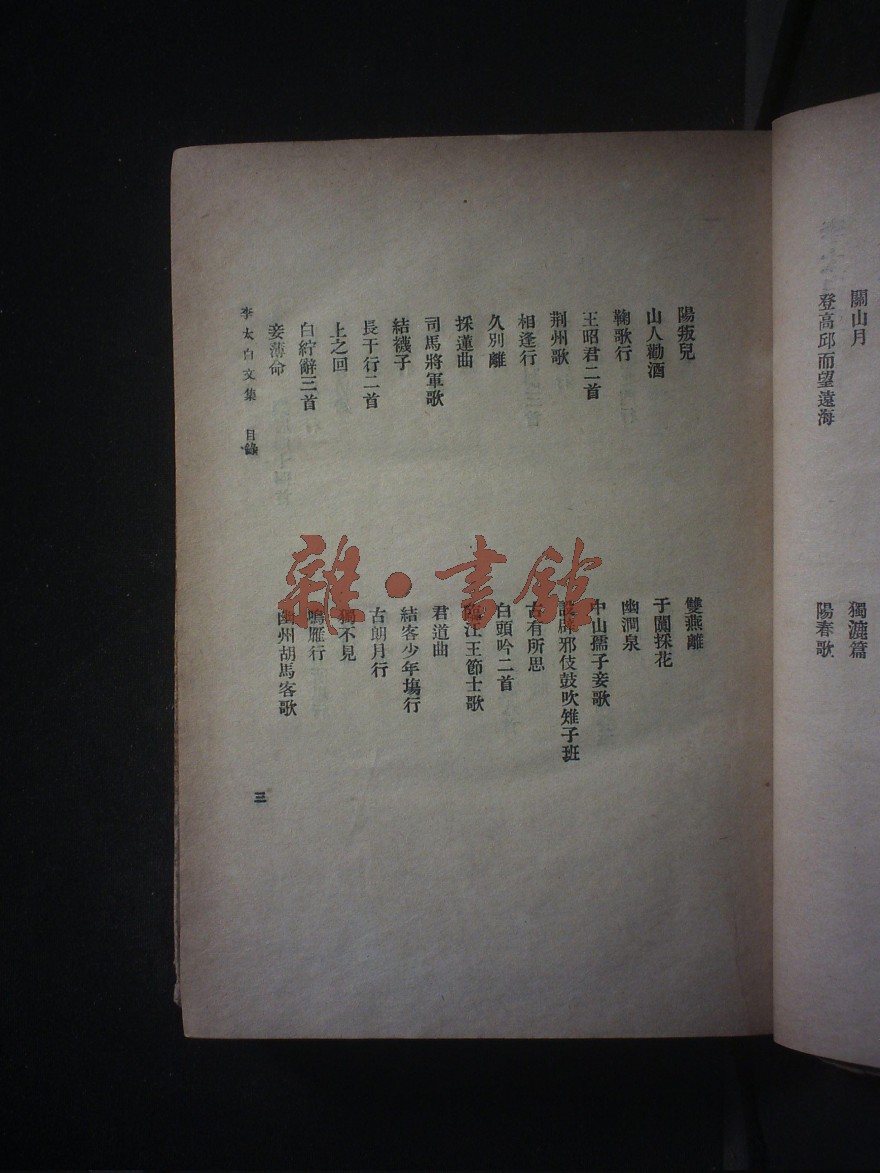 關山月
獨漉篇
登高邱而望遠海
陽春歌
陽叛兒
雙燕離
山人勸酒
于闐採花
鞠歌行
幽澗泉
王昭君二首
中山孺子妾歌
荆州歌
設辟邪伎鼓吹雉子班
相逢行
古有所思
久別離
白頭吟二首
採蓮曲
臨江王節士歌
司馬將軍歌
君道曲
結襪子
結客少年塲行
長干行二首
古朗月行
上之回
獨不見
白紵辭三首
鳴雁行
妾薄命
幽州胡馬客歌
李太白文集 目錄
三
雜·書館